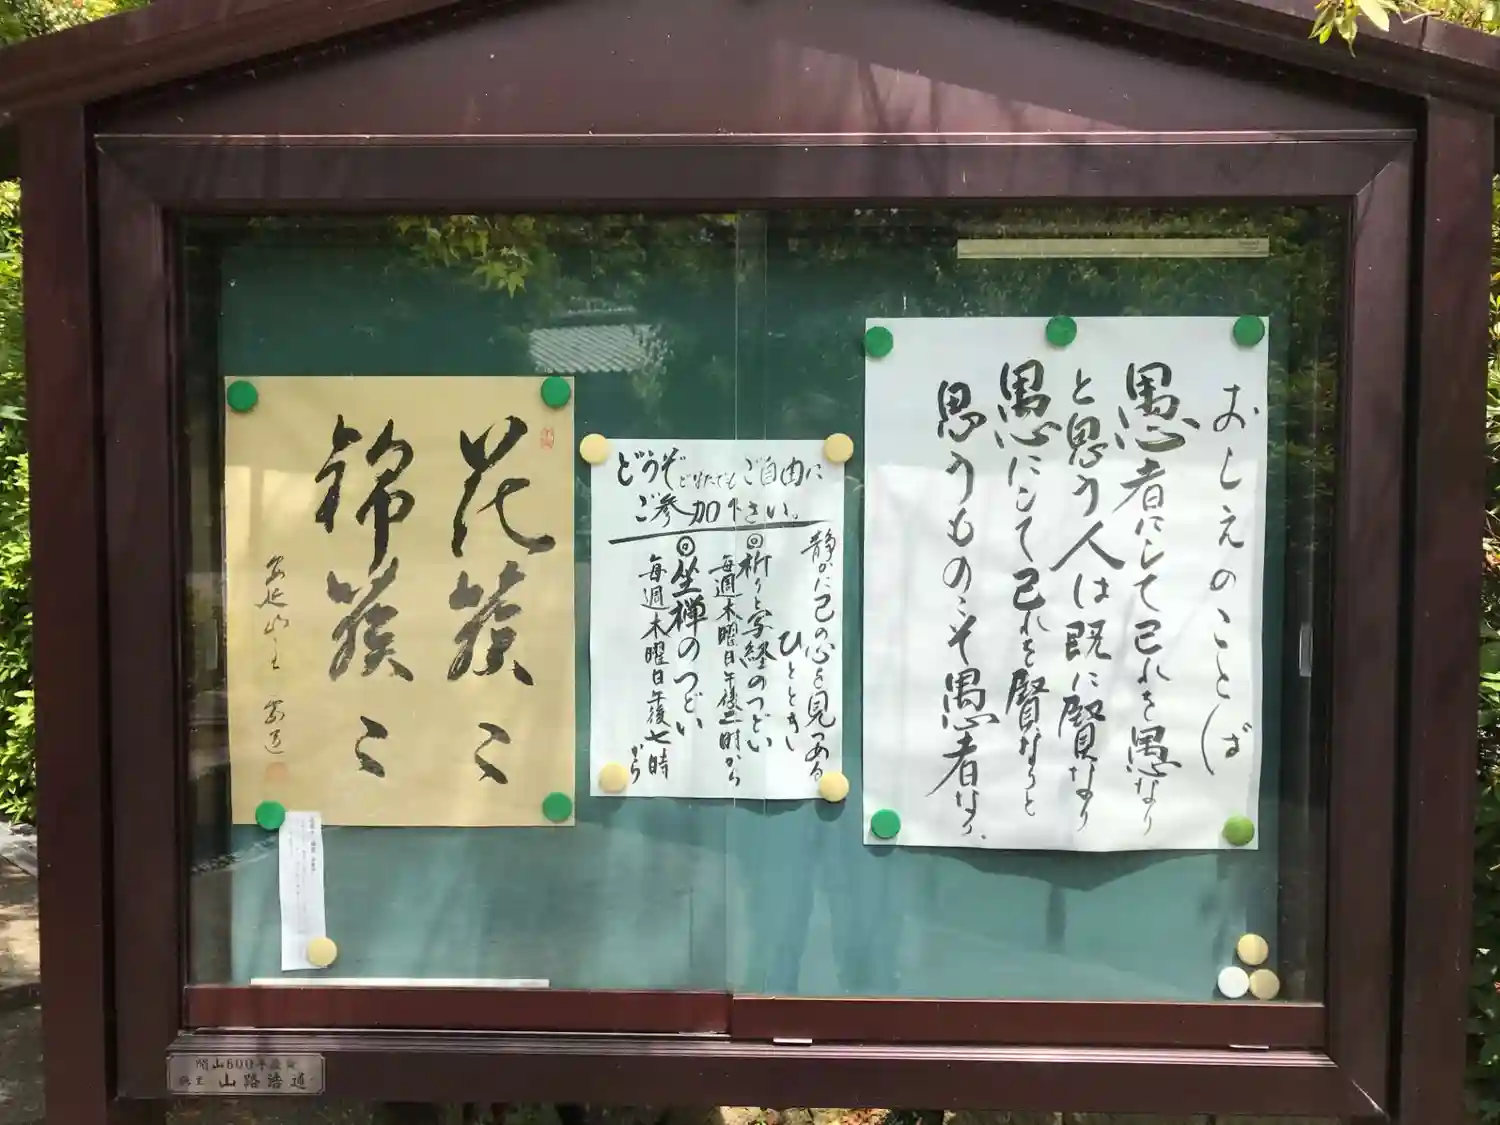 おしえのことば
愚者にして己れを愚なり
と思う人は既に賢なり
愚にして己れを賢なりと
思うものこそ愚者なり、
どうぞどなたでもご自由に
ご参加下さい。
静かに己の心を見つめる
ひととき
◎祈りと写経のつどい
毎週木曜日午後二時から
◎坐禅のつどい
毎週木曜日午後七時
から
花簇〻
錦簇〻
開山600年
山路浩道